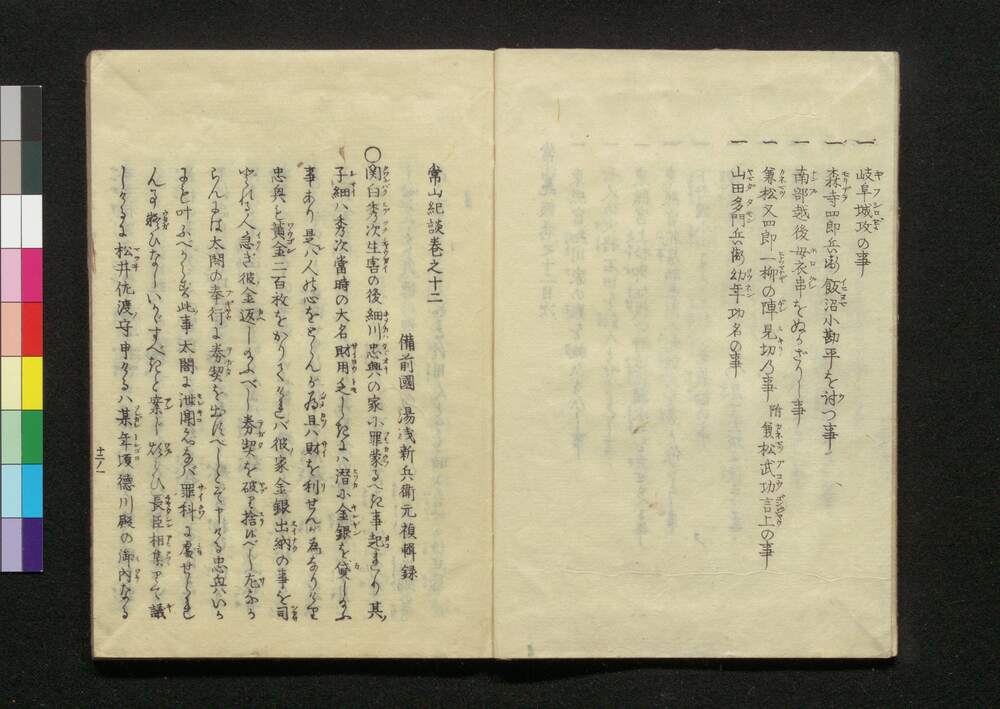 一 岐阜城攻の事
一 森寺四郎兵衛飯沼小勘平を討つ事
一 南部越後母衣串をぬかざりし事
一 兼松又四郎一柳の陣見切乃事 附兼松武功言上の事
一 山田多門兵衛幼年功名の事
常山紀談巻之十二
備前國 湯浅新兵衛元禎輯録
〇関白秀次生害の後細川忠興の家小罪蒙るべき事起れり其
子細ハ秀次當時の大名財用乏しきにハ潜小金銀を貸しあふ
事あり是ハ人の心をとらんが為且ハ財を利せんが為なりけり
忠興も黄金二百枚をかりられしバ彼家金銀出納の事を司
人急ぎ彼金返しあふべし券契を破り捨
らんにハ太閤の奉行に券契を出すべしとぞ申ける忠興いか
にも叶ふべからず此事太閤に泄聞えなバ罪科に處せられ
んす疑ひなしいかゞすべきと案じ煩ひ長臣相集めて議
しけるに松井佐渡守申けるハ某年頃徳川殿の御内なる
十二ノ一